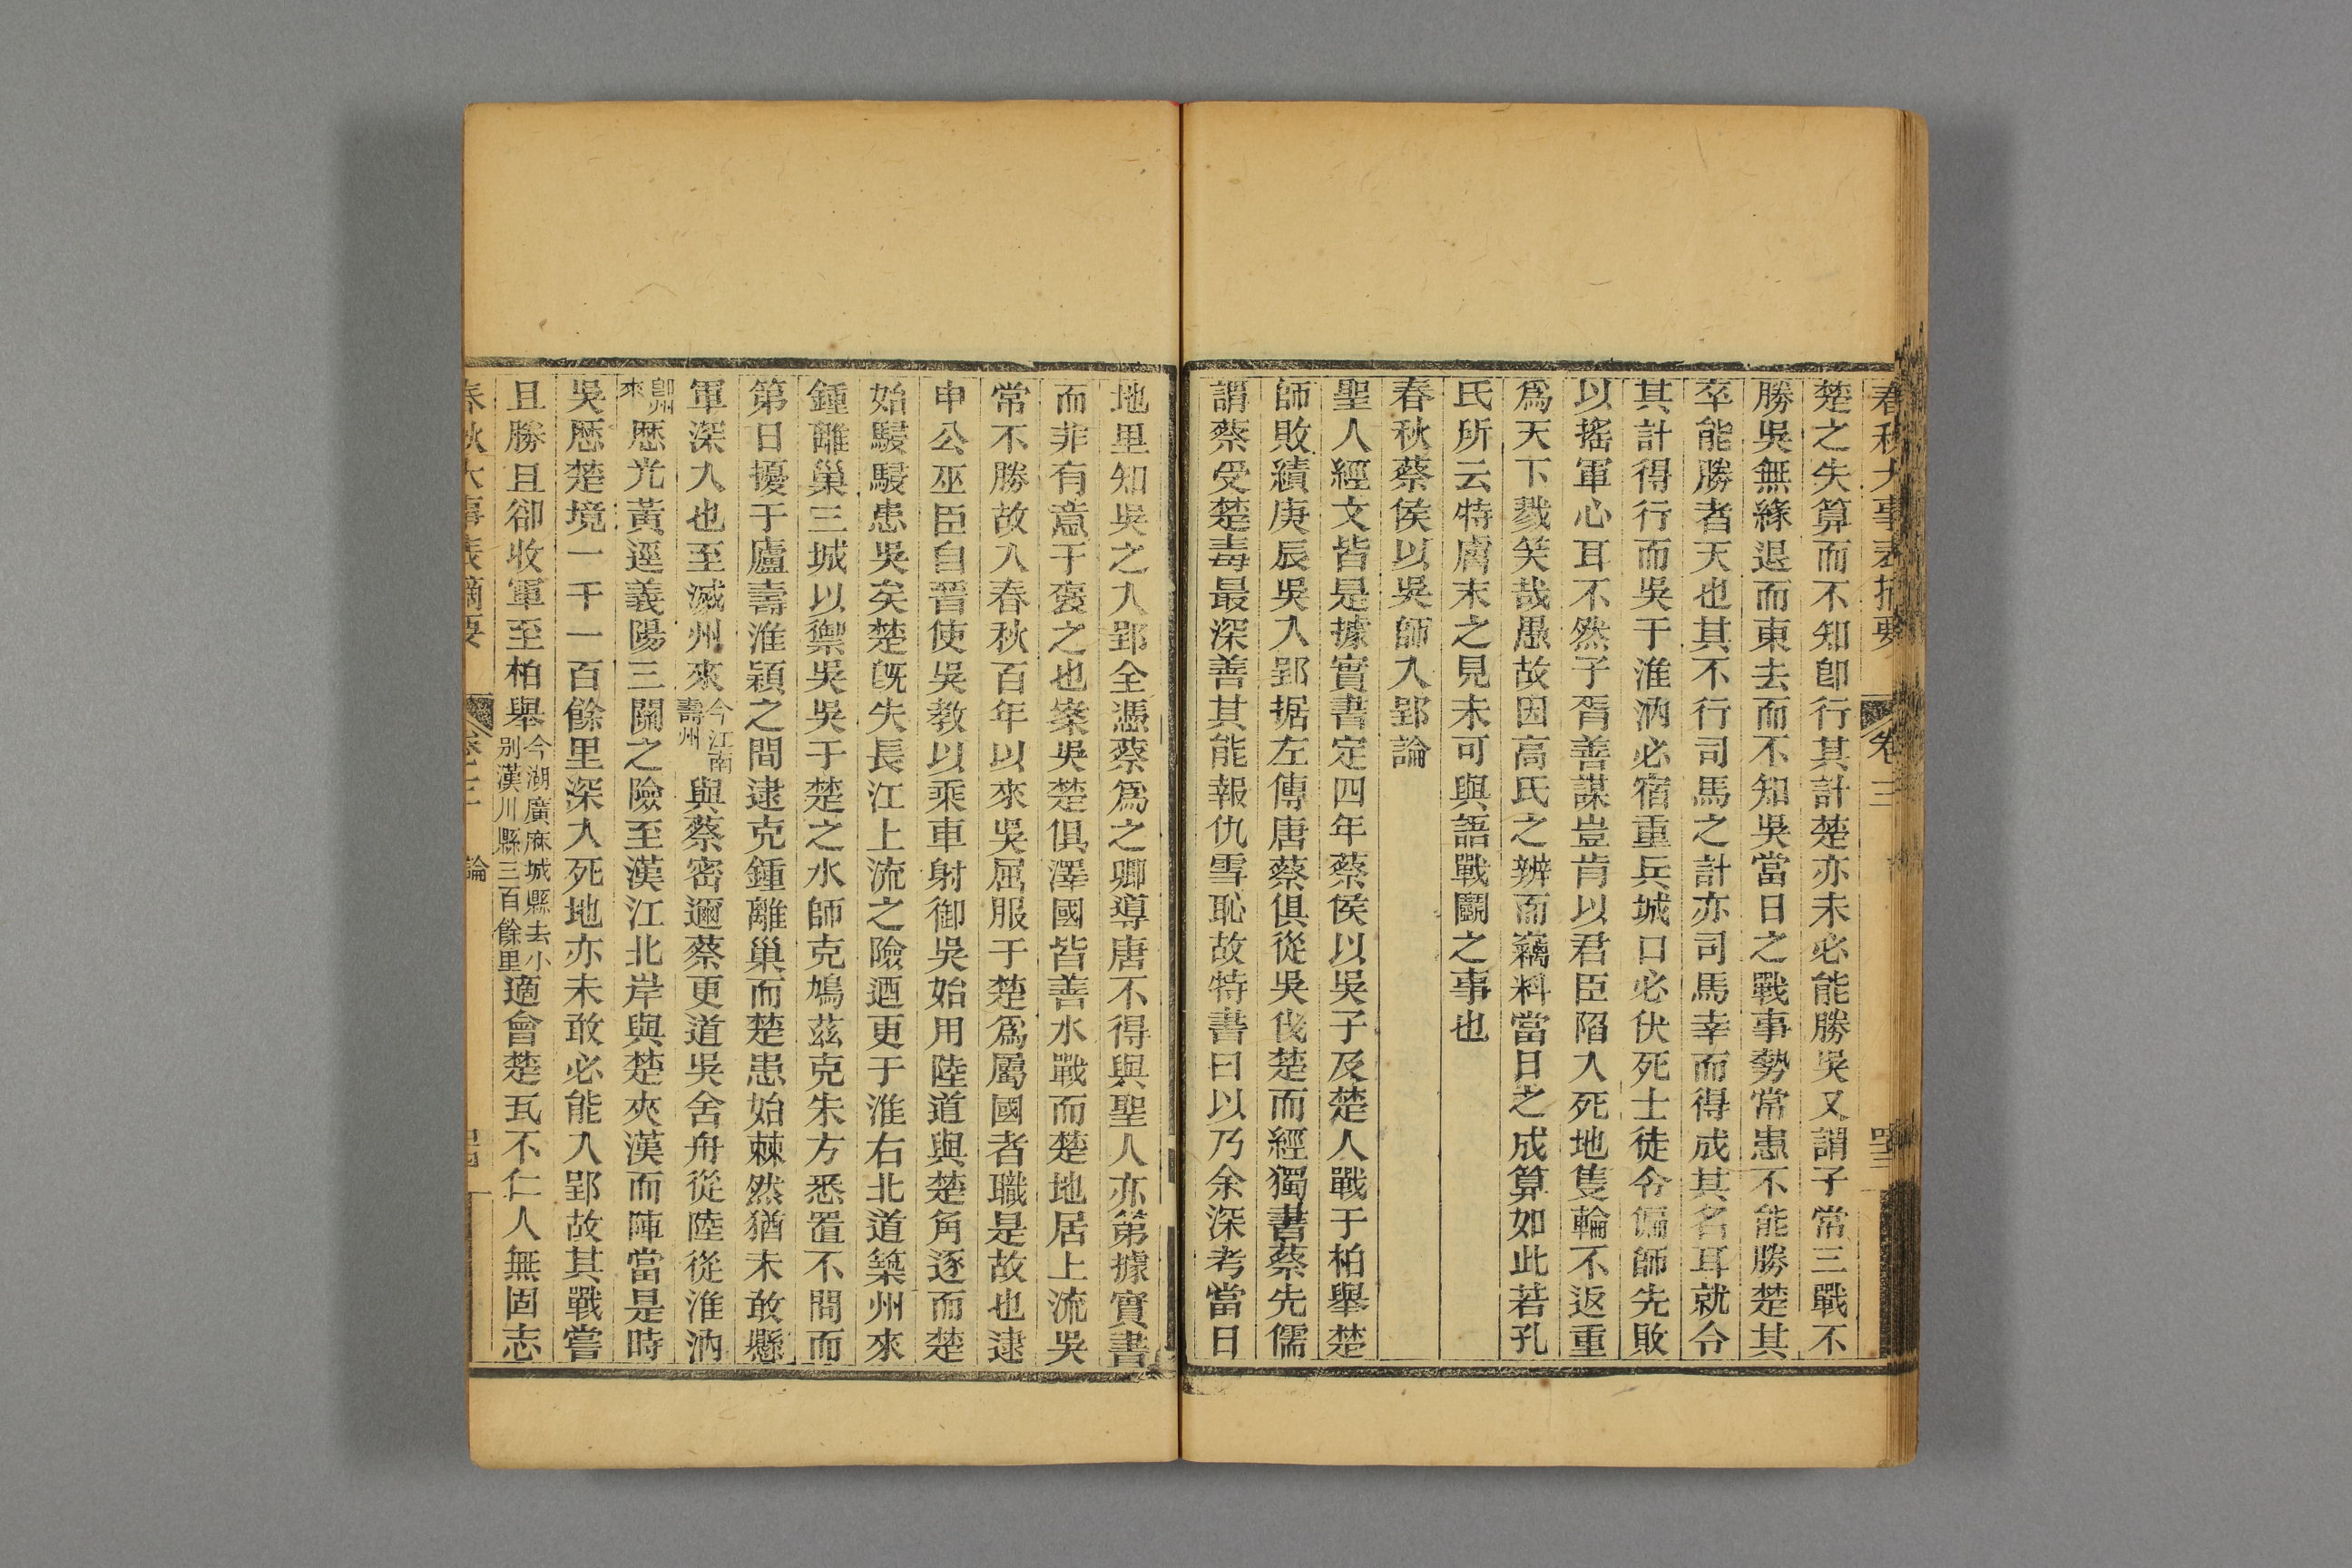 春秋大事表摘要 卷三 四三
楚之失算而不知卽行其計楚亦未必能勝吳又謂子常三戰不
勝吳無緣退而東去而不知吳當日之戰事勢常患不能勝楚其
卒能勝者天也其不行司馬之計亦司馬幸而得成其名耳就令
其計得行而吳于淮汭必宿重兵城口必伏死士徒令偏師先敗
以搖軍心耳不然子胥善謀豈肯以君臣陷入死地隻輪不返重
爲天下戮笑哉愚故因高氏之辨而竊料當日之成算如此若孔
氏所云特膚末之見未可與語戰鬭之事也
春秋蔡侯以吳師入郢論
聖人經文皆是據實書定四年蔡侯以吳子及楚人戰于柏舉楚
師敗績庚辰吳入郢据左傳唐蔡俱從吳伐楚而經獨書蔡先儒
謂蔡受楚毒最深善其能報仇雪恥故特書曰以乃余深考當日
地里知吳之入郢全憑蔡爲之鄕導唐不得與聖人亦第據實書
而非有意于褒之也案吳楚俱澤國皆善水戰而楚地居上流吳
常不勝故入春秋百年以來吳屈服于楚爲屬國者職是故也逮
申公巫臣自晉使吳教以乘車射御吳始用陸道與楚角逐而楚
始駸駸患吳矣楚旣失長江上流之險迺更于淮右北道築州來
鍾離巢三城以禦吳吳于楚之水師克鳩茲克朱方悉置不問而
第日擾于廬壽淮潁之間逮克鍾離巢而楚患始棘然猶未敢懸
軍深入也至滅州來今江南壽州與蔡密邇蔡更道吳舍舟從陸從淮汭
卽州來歷光黃逕義陽三關之險至漢江北岸與楚夾漢而陣當是時
吳歷楚境一千一百餘里深入死地亦未敢必能入郢故其戰嘗
且勝且卻收軍至柏舉今湖廣麻城縣去小别漢川縣三百餘里適會楚瓦不仁人無固志
春秋大事表摘要 卷三 論 四四